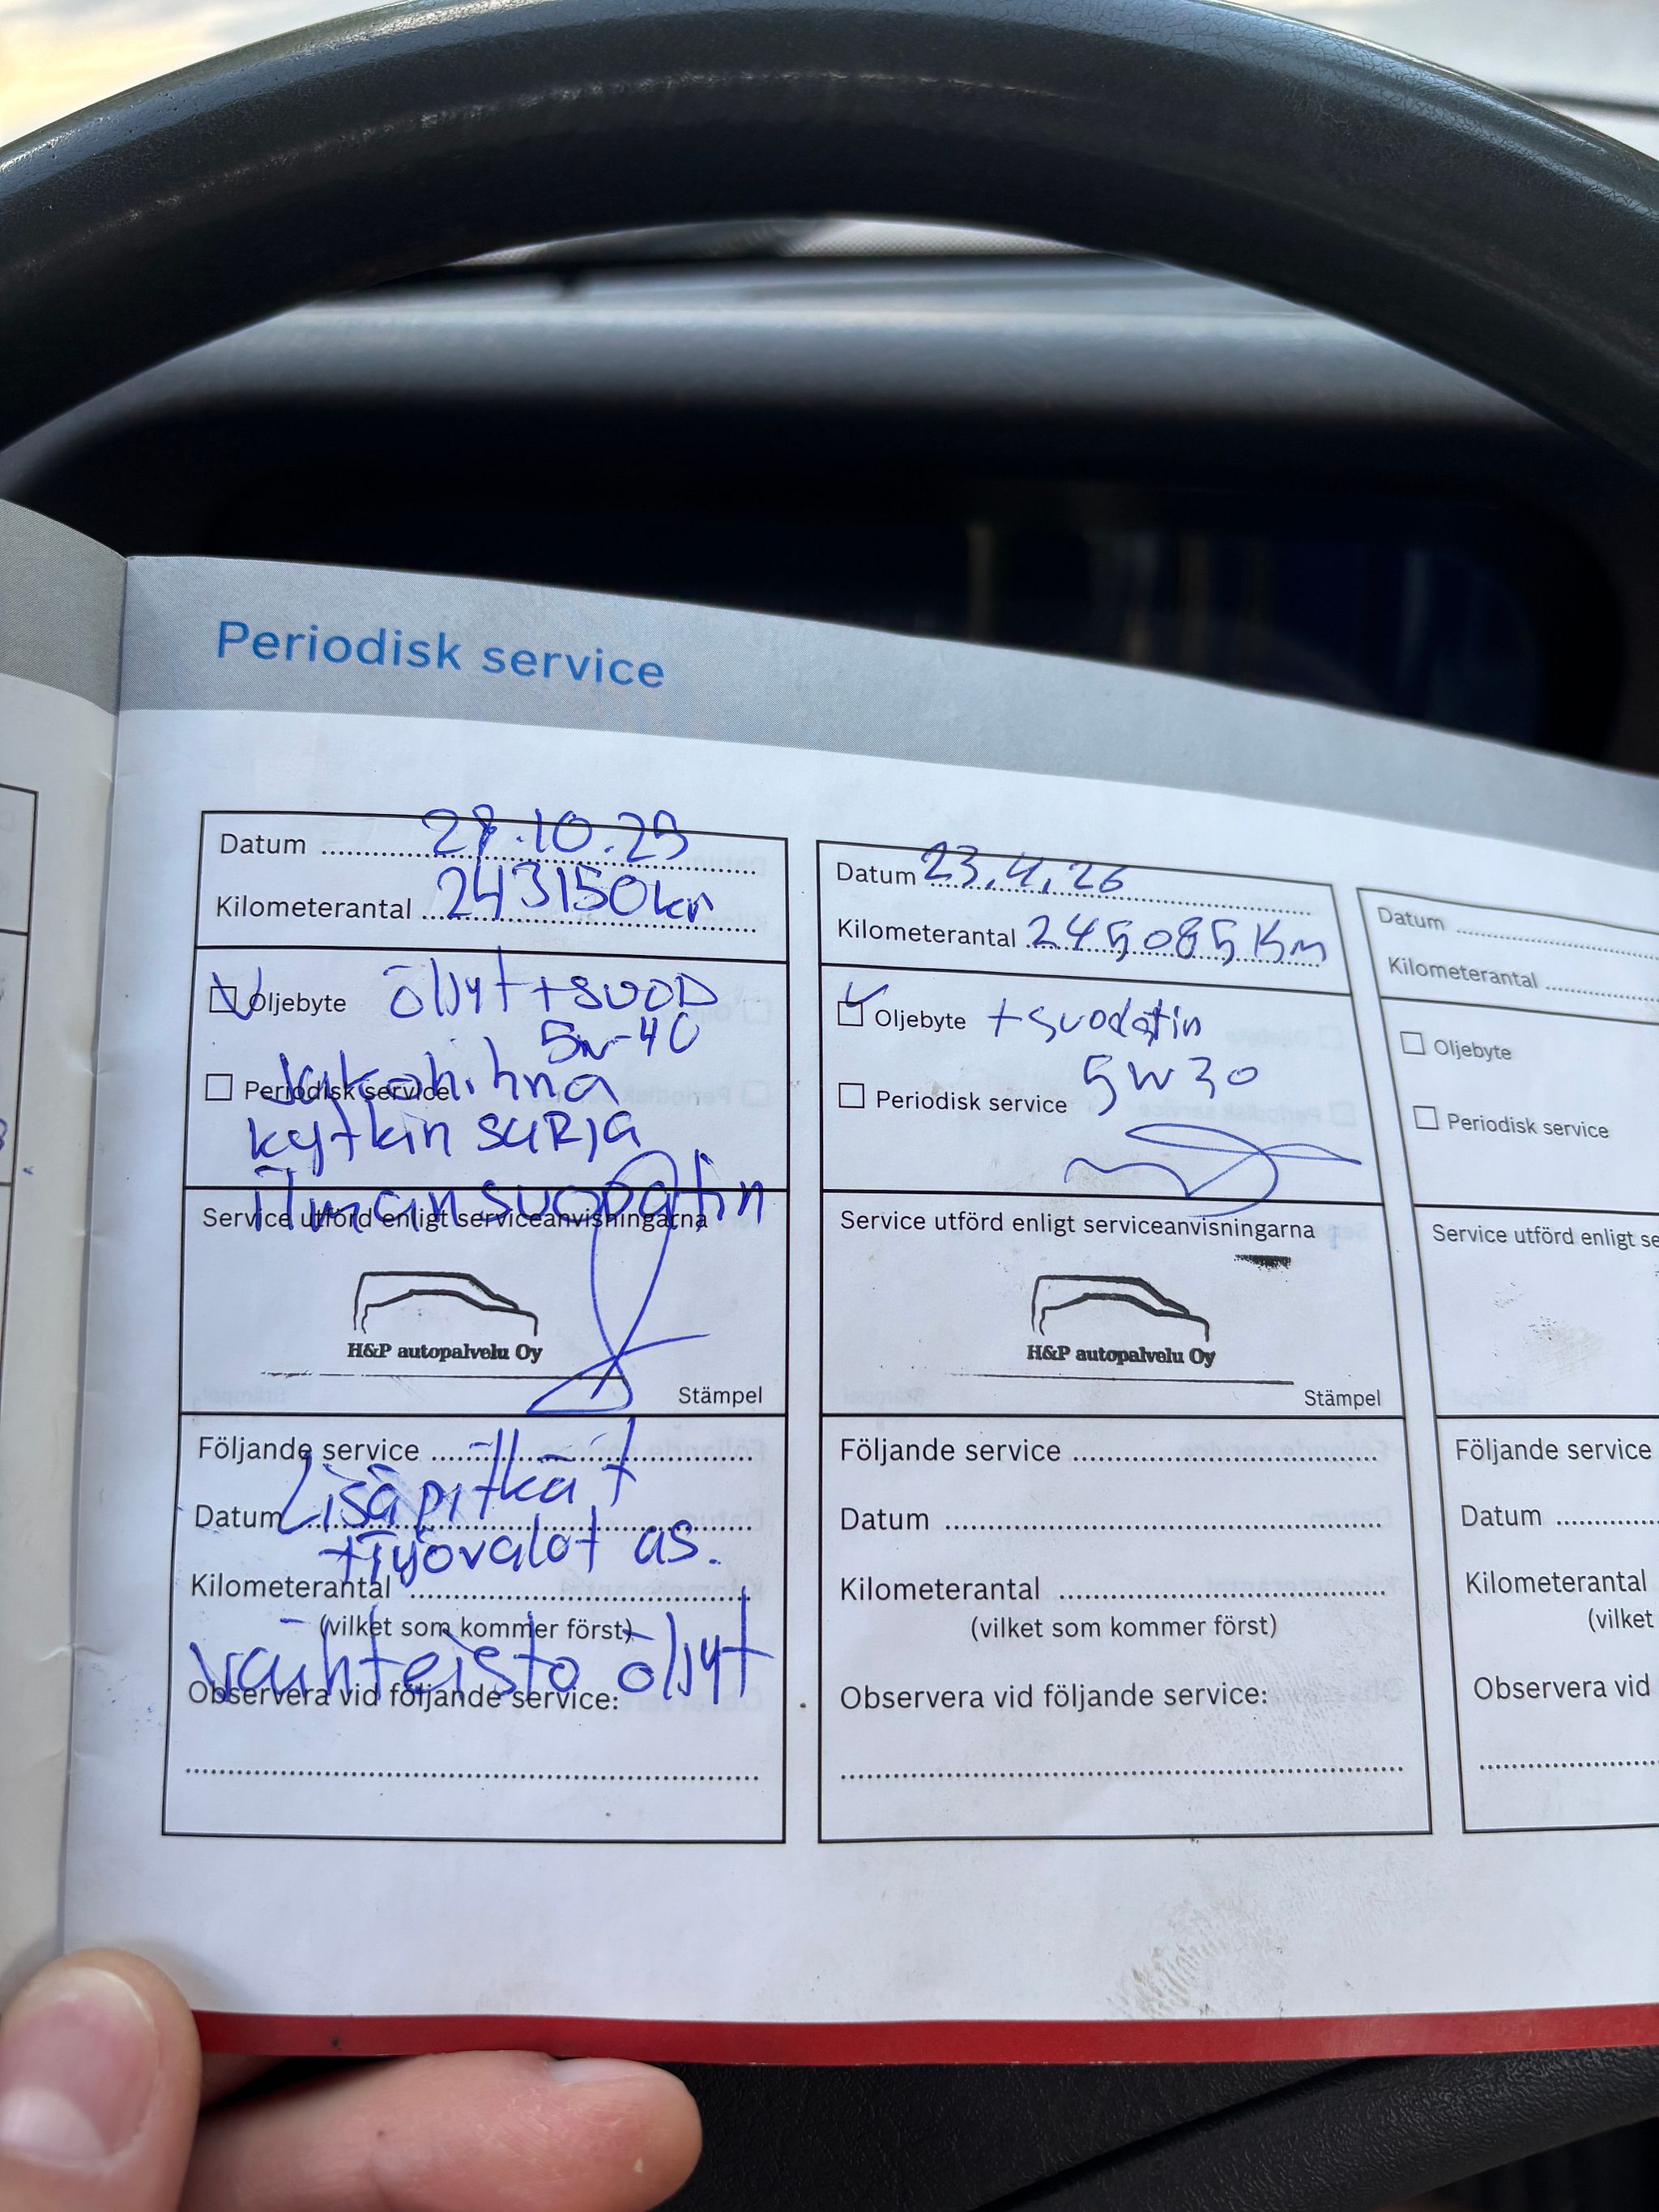 Periodisk service
Datum 28.10.25
Kilometerantal 243150km
Oljebyte öljyt + suod
5w-40
Periodisk service Jakohihna
kytkin sarja
ilmansuodatin
Service utförd enligt serviceanvisningarna
H&P autopalvelu Oy
Stämpel
Följande service
Lisäpitkät
Datum
+työvalot as.
Kilometerantal
(vilket som kommer först)
vaihteisto öljyt
Observera vid följande service:
Datum 23.4.26
Kilometerantal 245085 Km
Oljebyte + suodatin
5W30
Periodisk service
Service utförd enligt serviceanvisningarna
H&P autopalvelu Oy
Stämpel
Följande service
Datum
Kilometerantal
(vilket som kommer först)
Observera vid följande service:
Datum
Kilometerantal
Oljebyte
Periodisk service
Service utförd enligt se
Följande service
Datum
Kilometerantal
(vilket
Observera vid